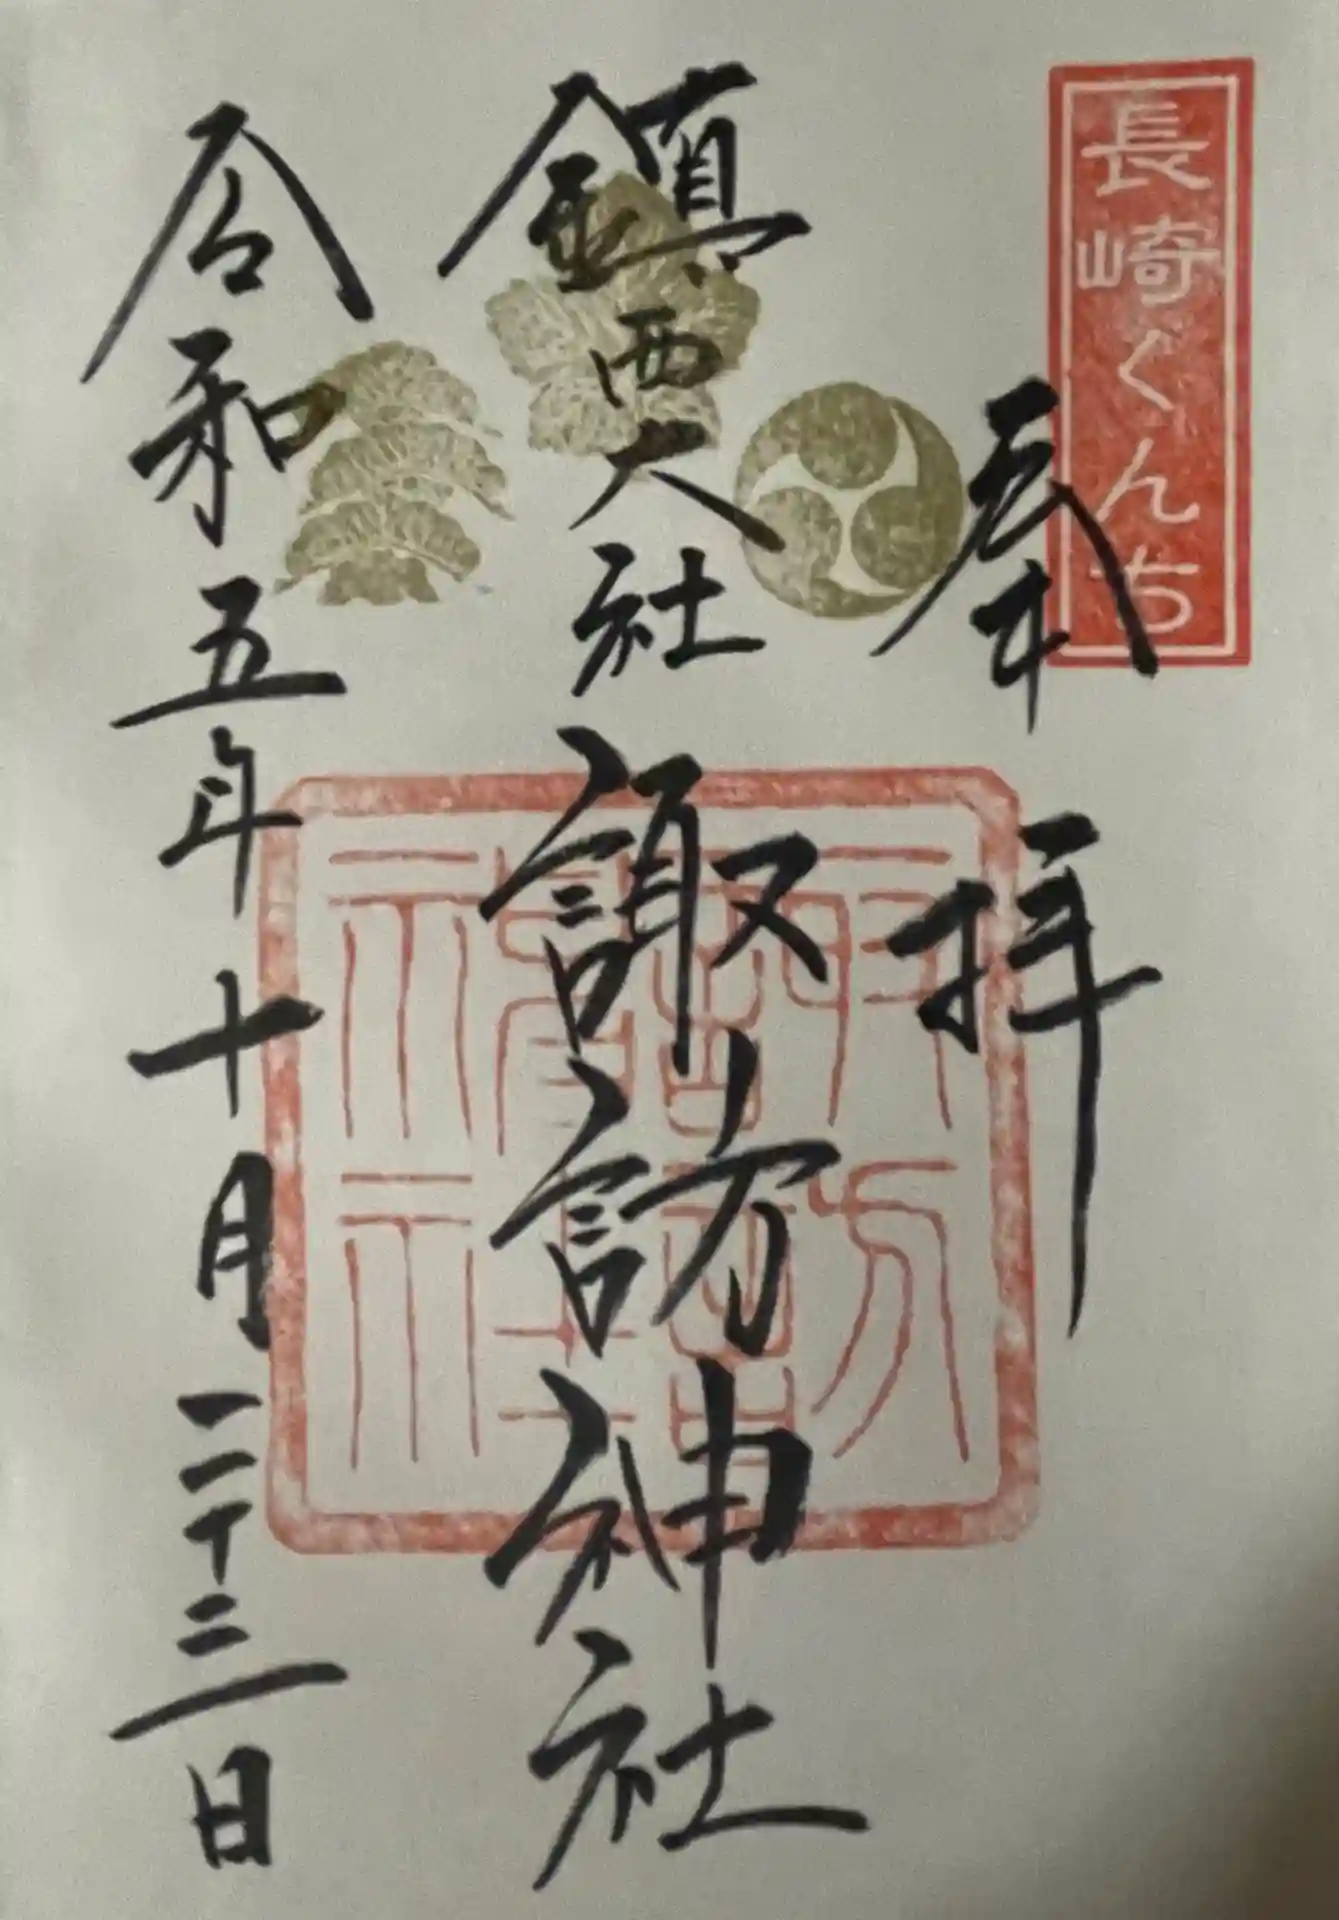 長崎くんち
奉拝
鎮西大社
諏訪神社
諏方
神社
令和五年十月二十三日